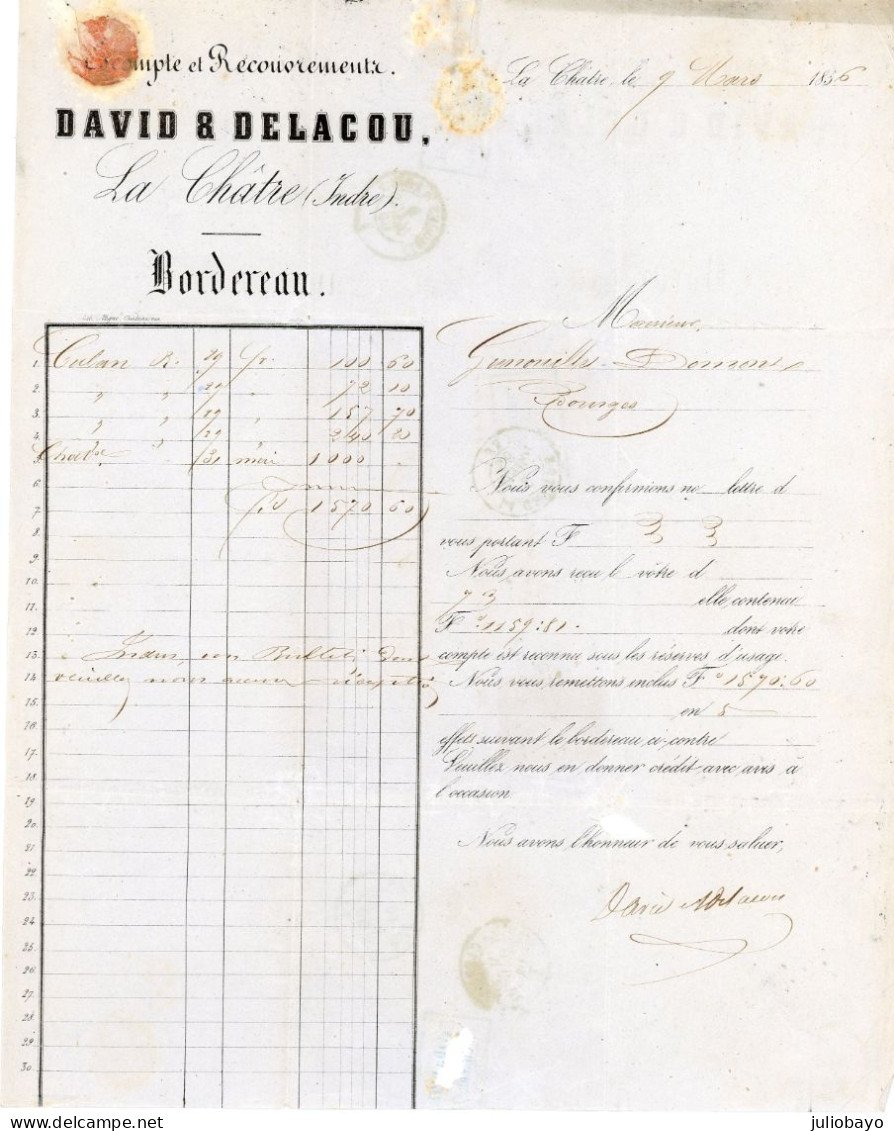 compte et Recouvrements.
DAVID & DELACOU,
La Châtre (Indre).
Bordereau.
La Châtre, le 9 Mars 1856
Messieurs,
Bourges
1. Culan R. 29 fr. 100 60
2. " " 29 " 72 10
3. " " 29 " 157 70
4. " " 29 " 240 20
5. 31 1000 .
6.
7. 1570 60
8.
9.
10.
11.
12.
13.
14. veuillez nous
15.
16.
17.
18.
19.
20.
21.
22.
23.
24.
25.
26.
27.
28.
29.
30.
Nous vous confirmions no lettre d
vous portant F
Nous avons reçu l vôtre d
7 elle contenai
F 1159:81. dont votre
compte est reconnu sous les réserves d'usage.
Nous vous remettons inclus F 1570:60
en 5
effets suivant le bordereau ci-contre
Veuillez nous en donner crédit avec avis à
l'occasion
Nous avons l'honneur de vous saluer,
David & Delacou
juliobayo